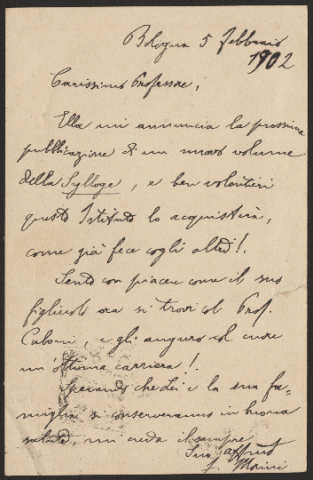 Bologna 5 febbraio
1902
Carissimo Professore,
Ella mi annuncia la prossima
pubblicazione di un nuovo volume
della Sylloge, e ben volontieri
questo Istituto lo acquisterà,
come già fece cogli altri!.
Sento con piacere come il suo
figliuolo ora si trovi col Prof.
Cuboni, e gli auguro col cuore
un'ottima carriera!.
Sperando che Lei e la sua fa-
miglia si conserveranno in buona
salute, mi creda il sempre
Suo affmo
F. Morini